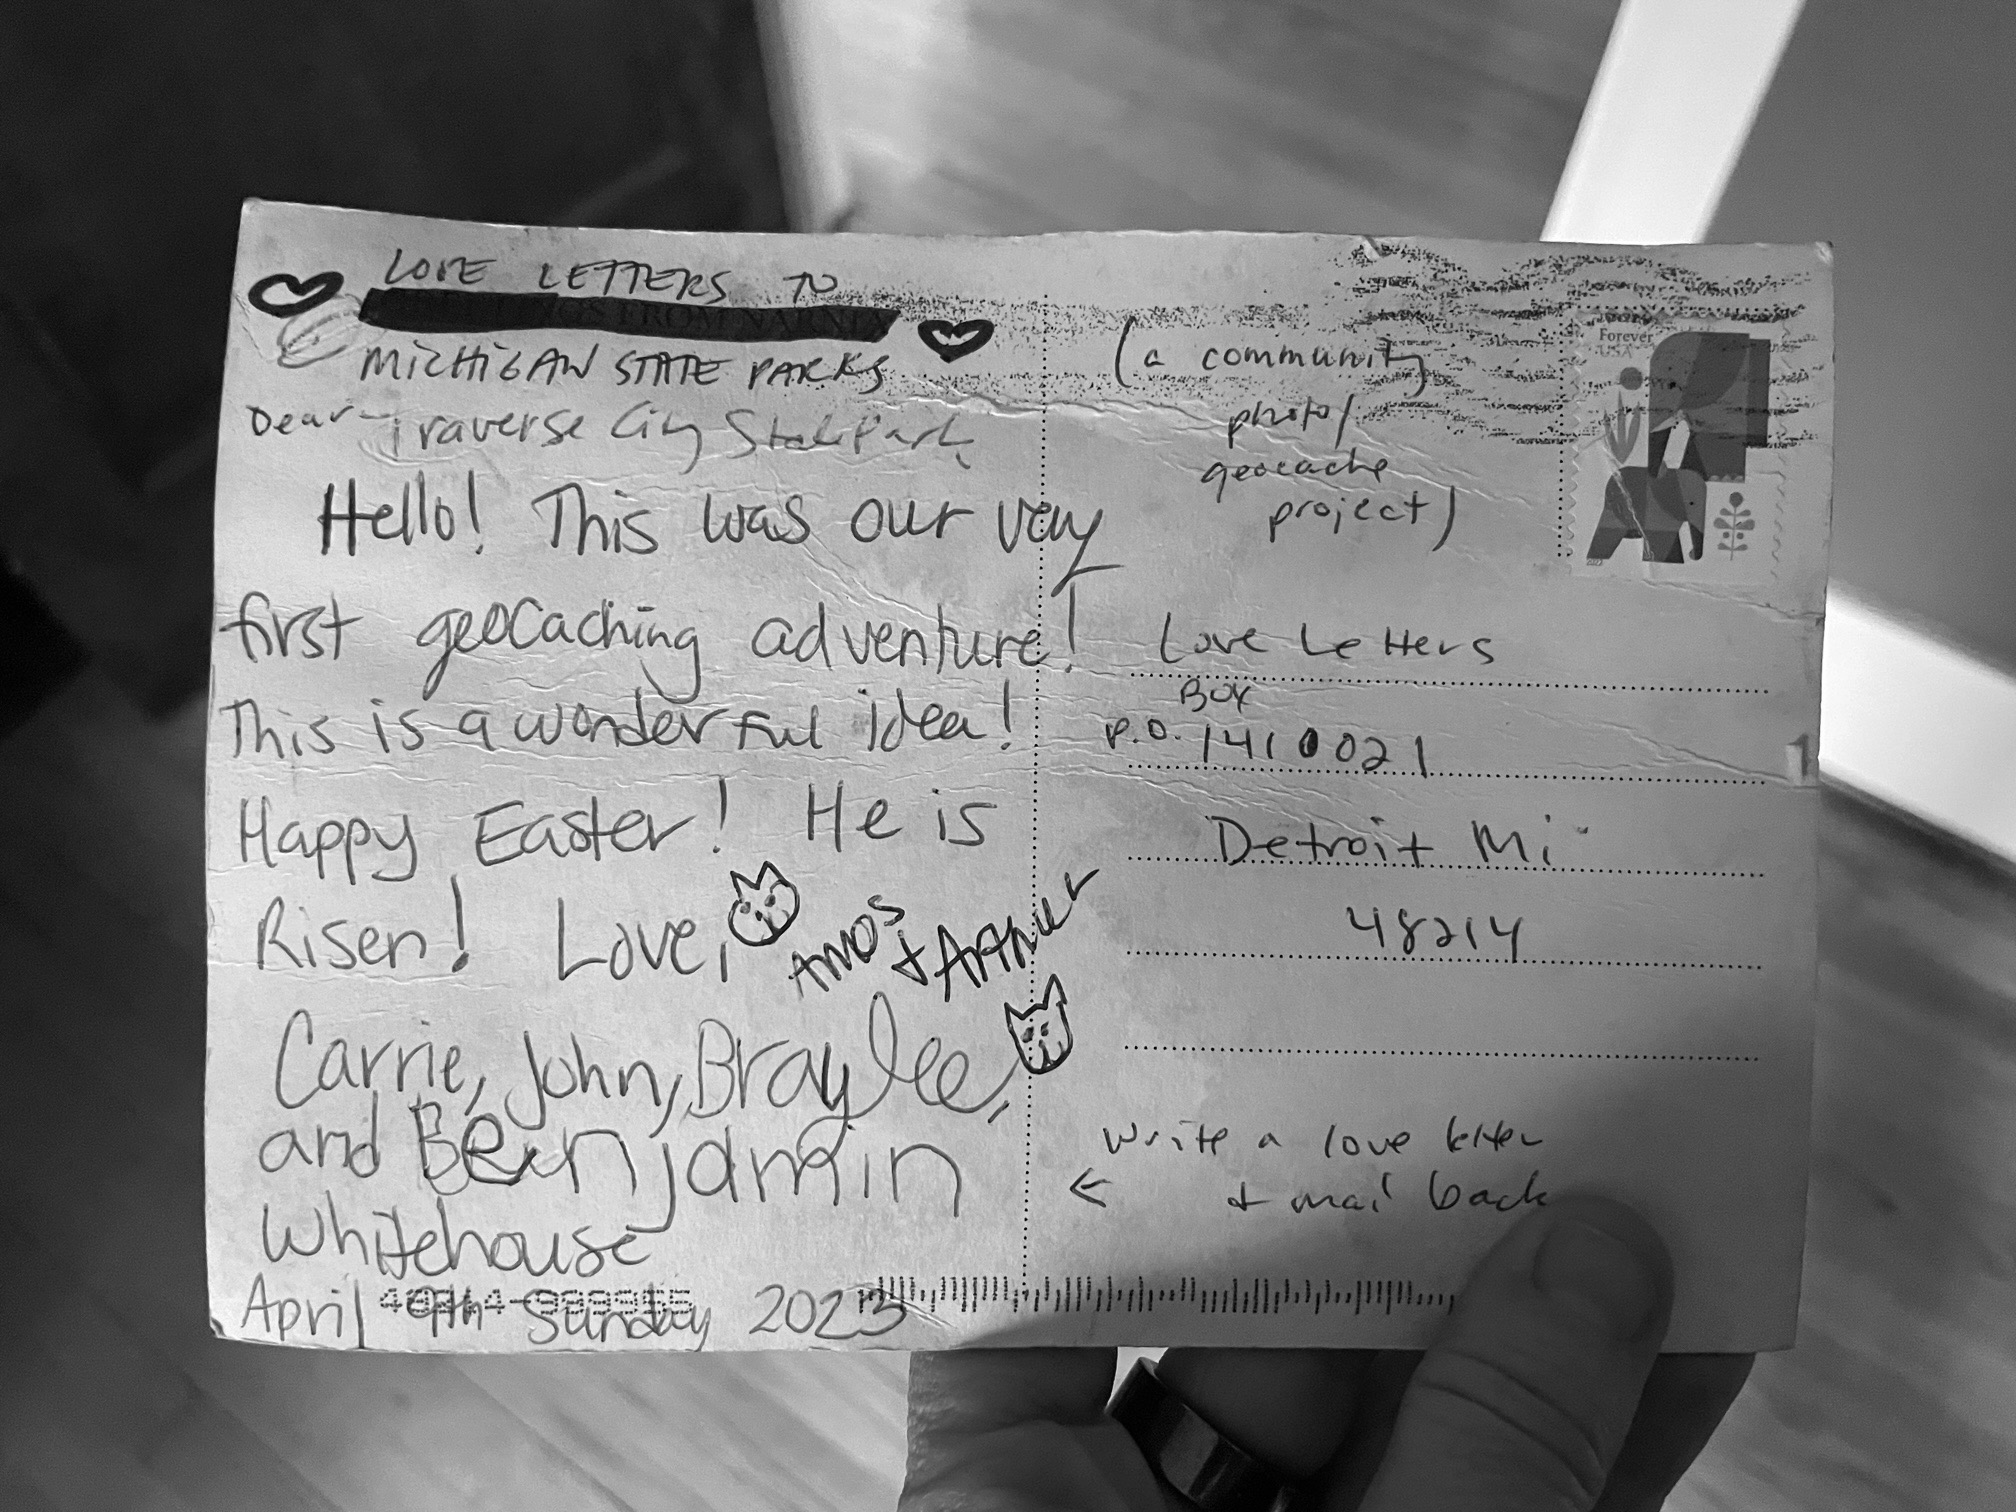 LOVE LETTERS TO
FROM NARNIA
MICHIGAN STATE PARKS
Dear Traverse City State Park,
Hello! This was our very
first geocaching adventure!
This is a wonderful idea!
Happy Easter! He is
Risen! Love,
Amos
+ Arthur
Carrie, John, Braylee,
and Benjamin
Whitehouse
April 9th Sunday 2023
(a community
photo/
geocache
project)
Forever
USA
Love Letters
Box
P.O. 1410021
Detroit Mi
48214
write a love letter
← + mail back